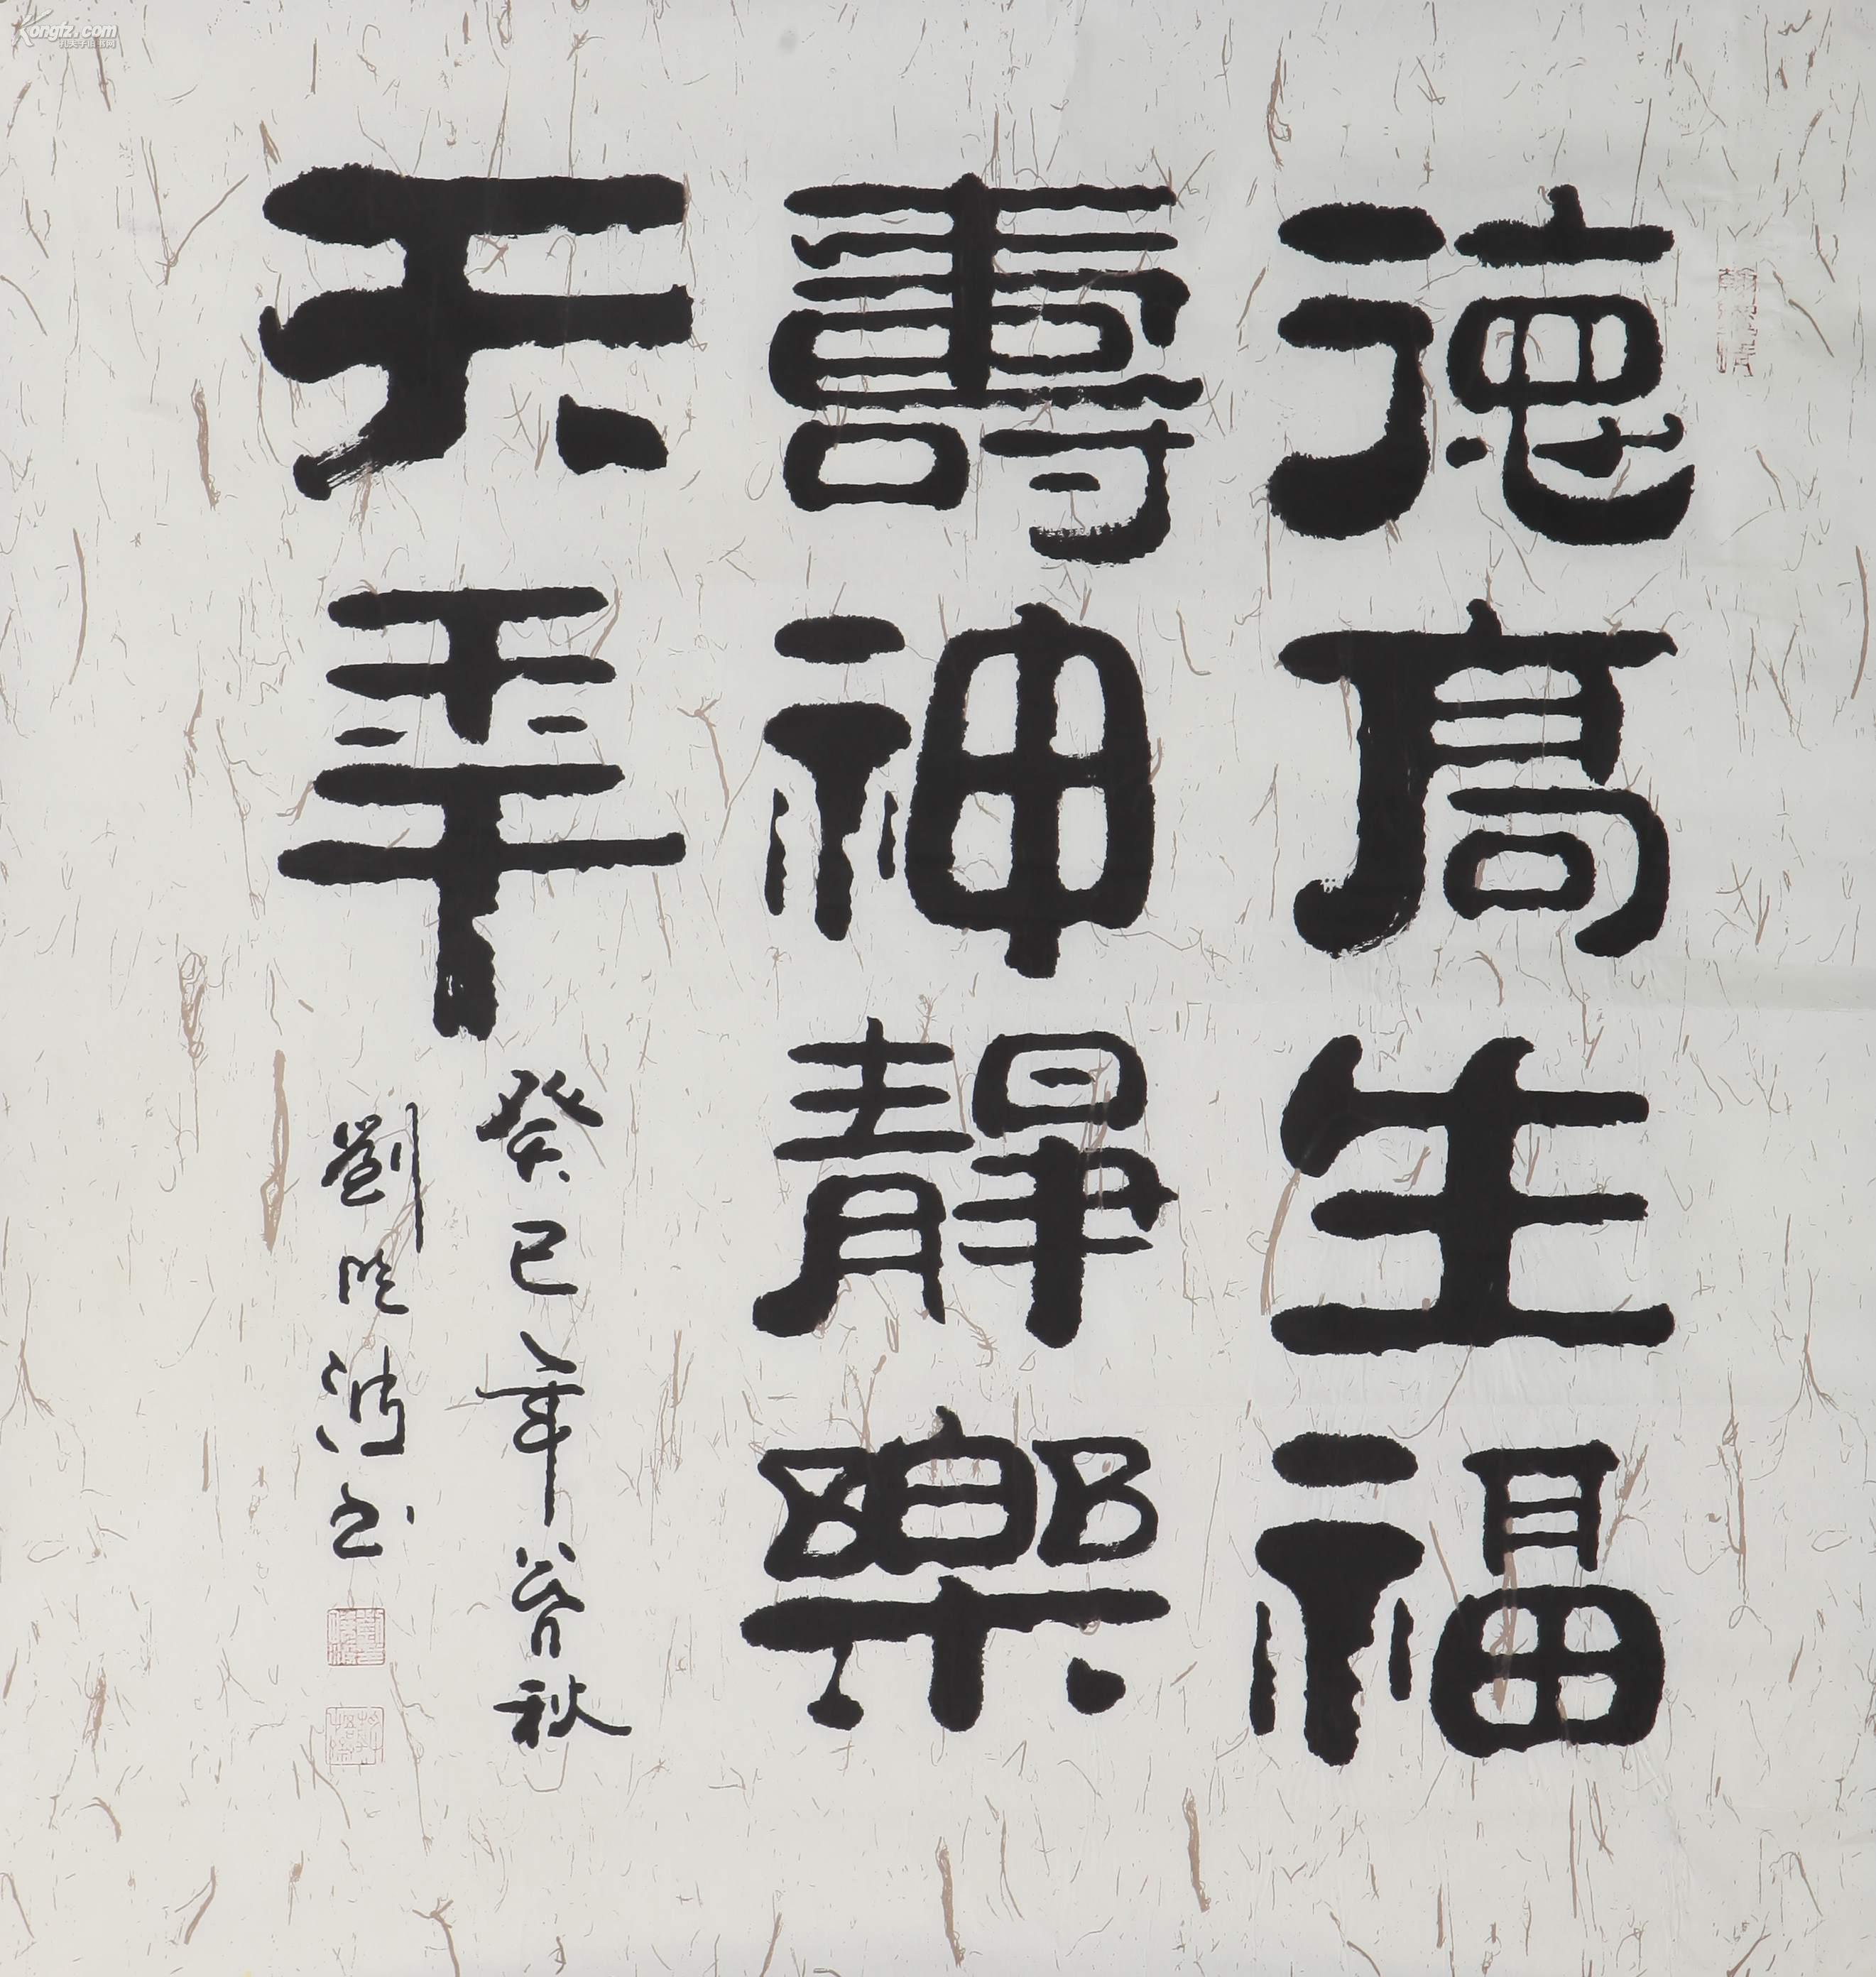 德高生福
壽神靜樂
天年
癸巳年春秋
劉
书
Kongfz.com
孔夫子旧书网